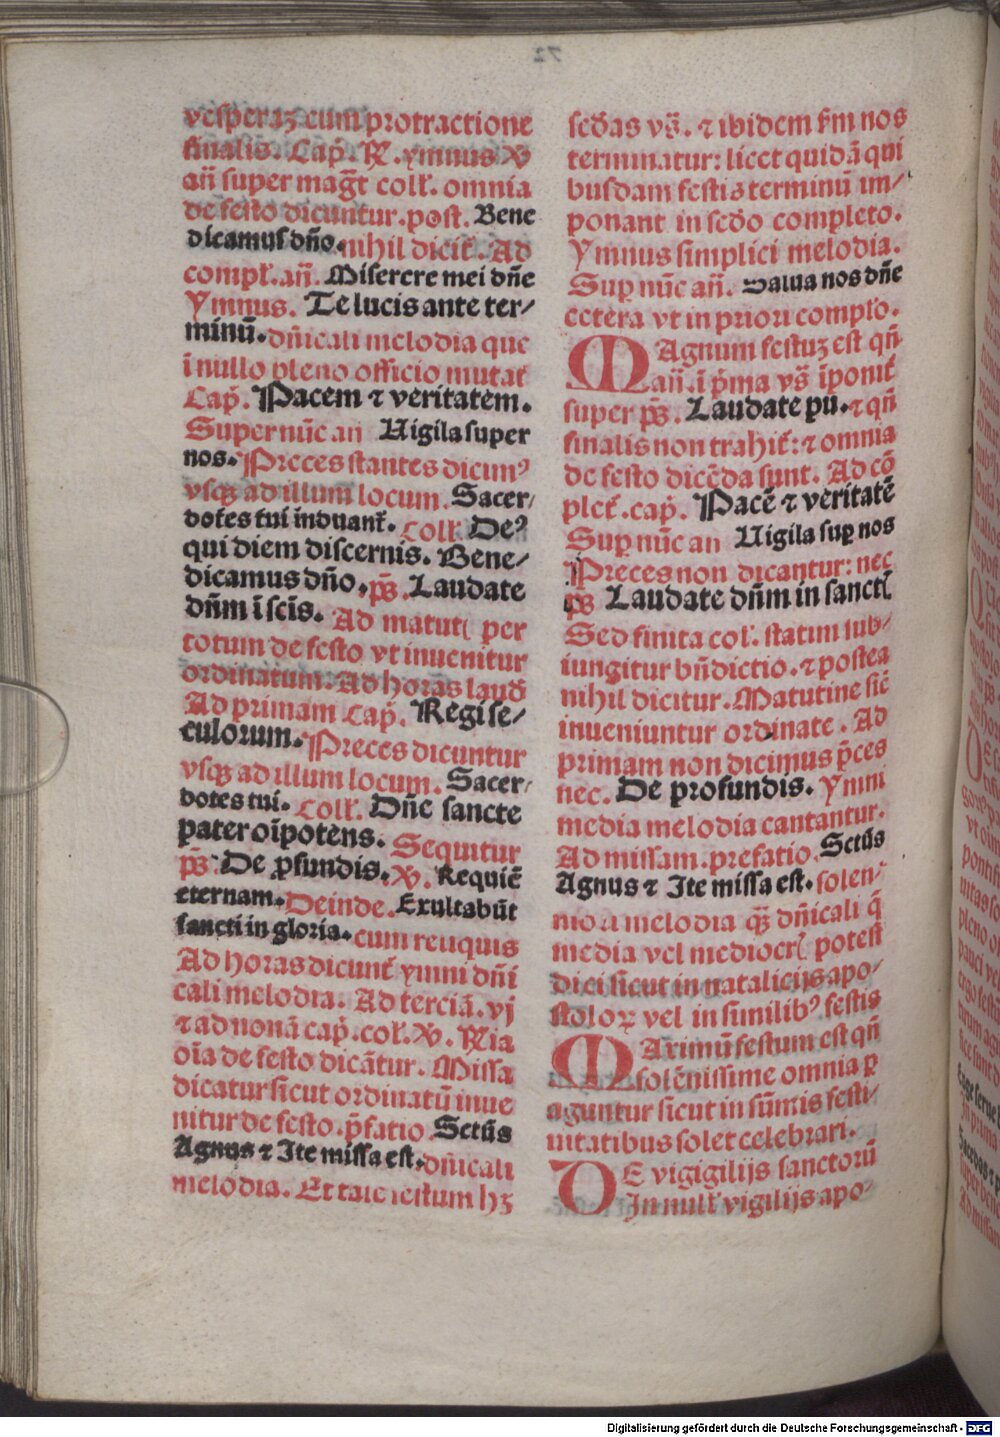 vesperaꝫ cum protractione
finalis. Cap̃. R̃. ymnus ℣
añ super mag̃t coll̃. omnia
de festo dicuntur. post. Bene
dicamus dño. nihil dicit̃. Ad
compl̃. añ. Miserere mei dñe
Ymnus. Te lucis ante ter/
minũ. dñicali melodia que
ĩ nullo pleno officio mutat̃
Cap̃. Pacem ⁊ veritatem.
Super nũc an Uigila super
nos. Preces stantes dicimꝰ
vsqꝫ ad illum locum. Sacer/
dotes tui induant̃. Coll̃. Deꝰ
qui diem discernis. Bene/
dicamus dño. p̃s. Laudate
dñm ĩ scĩs. Ad matuti per
totum de festo vt inuenitur
ordinatum. Ad horas laud̃
Ad primam Cap̃. Regi se/
culorum. Preces dicuntur
vsqꝫ ad illum locum. Sacer/
dotes tui. Coll̃. Dñe sancte
pater oĩpotens. Sequitur
p̃s De ꝓfundis. ℣. Requiẽ
eternam. Deinde. Exultabũt
sancti in gloria. cum reliquis
Ad horas dicunt̃ ymni dñi
cali melodia. Ad terciã. vj
⁊ ad nonã cap̃. col̃. ℣. Ria
oĩa de festo dicãtur. Missa
dicatur sicut ordinatũ inue
nitur de festo. p̃fatio Sctũs
Agnus ⁊ Ite missa est. dñicali
melodia. Et tale festum hꝫ
secd̃as vs̃. ⁊ ibidem km̃ nos
terminatur: licet quidã qui
busdam festis terminũ im/
ponant in secd̃o completo.
Ymnus simplici melodia.
Suꝑ nũc añ. Salua nos dñe
ectera vt in priori compl̃o.
Magnum festuꝫ est qñ
añ. ĩ p̃ma vs̃ ĩponit̃
super p̃s. Laudate pu. ⁊ qñ
finalis non trahit̃: ⁊ omnia
de festo dicẽda sunt. Ad cõ
plet̃. cap̃. Pacẽ ⁊ veritatẽ
Suꝑ nũc an Uigila suꝑ nos
Preces non dicantur: nec
p̃s Laudate dñm in sancti
Sed finita col̃. statim sub/
iungitur bñdictio. ⁊ postea
nihil dicitur. Matutine sic̃
inueniuntur ordinate. Ad
primam non dicimus p̃ces
nec. De profundis. Ymni
media melodia cantantur.
Ad missam. prefatio. Sctũs
Agnus ⁊ Ite missa est. solen/
niori melodia qꝫ̃ dñicali q̃
media vel mediocri potest
dici sicut in natalicijs apo/
stoloꝝ vel in similibꝰ festis
Maximũ festum est qñ
solẽnissime omnia ꝑ
aguntur sicut in sũmis festi/
uitatibus solet celebrari.
De vigigilijs sanctorũ
In null̃ vigilijs apo/
Digitalisierung gefördert durch die Deutsche Forschungsgemeinschaft - DFG